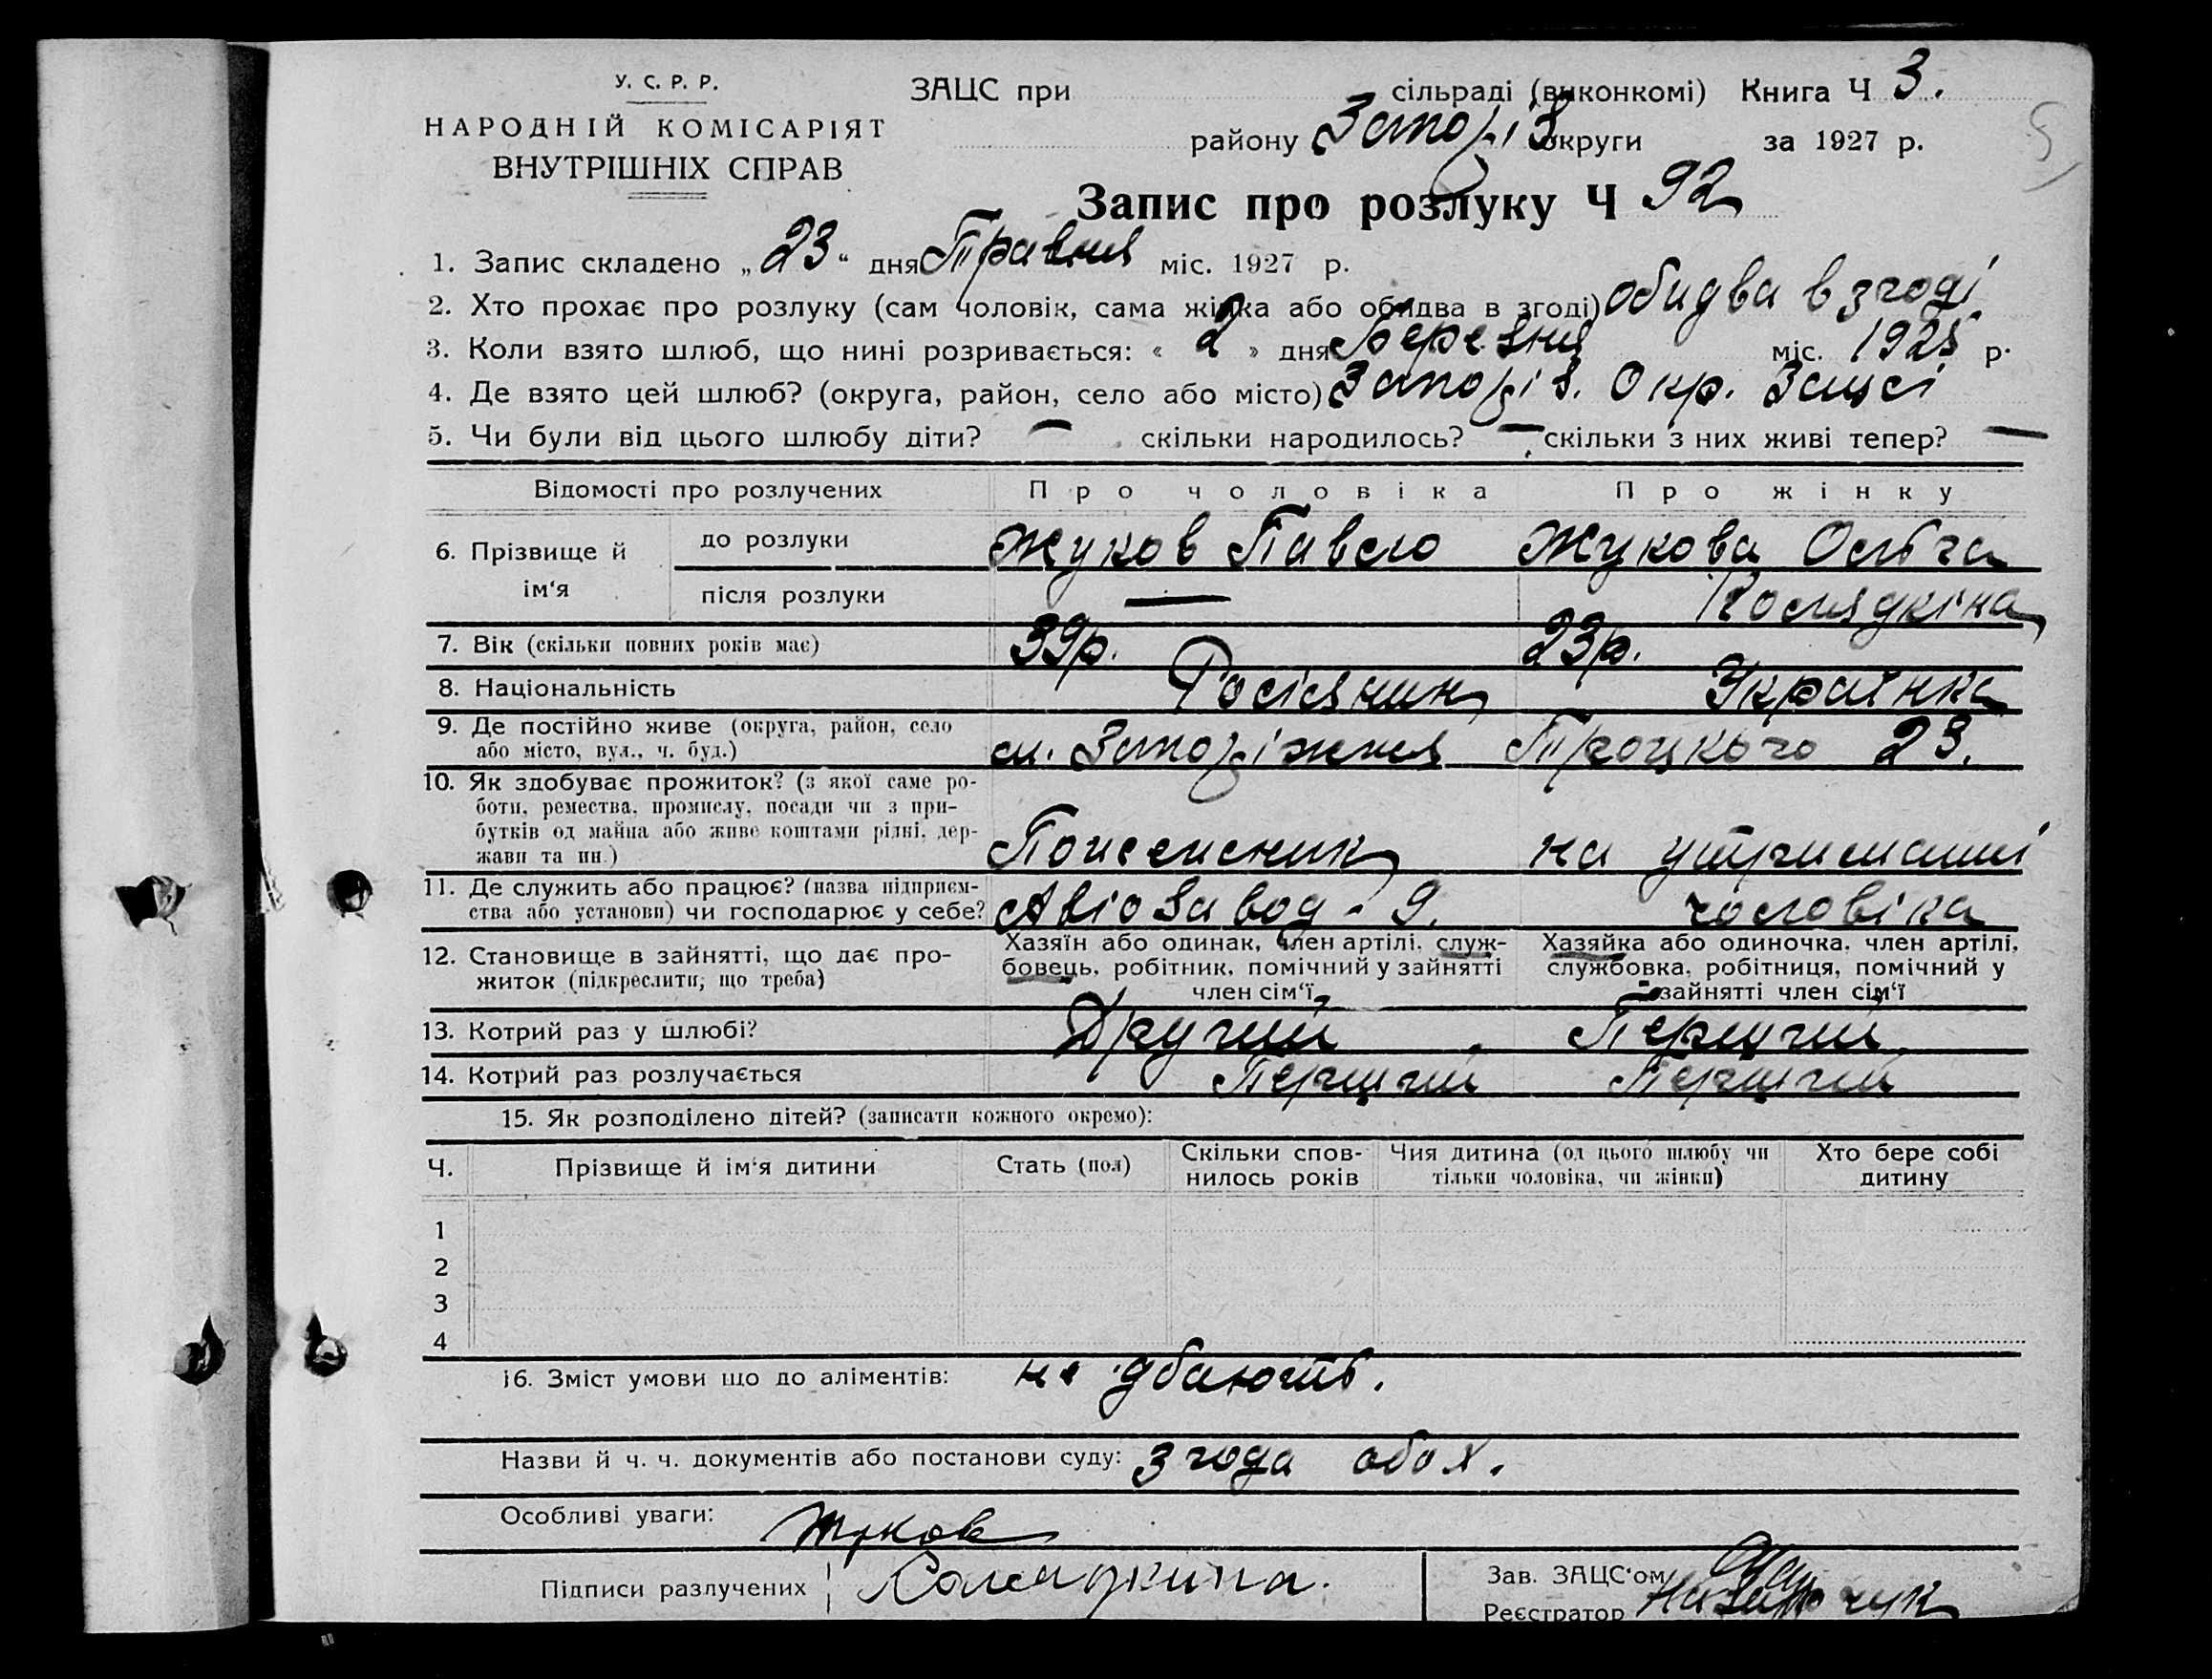 У. С. Р. Р.
НАРОДНІЙ КОМІСАРІЯТ
ВНУТРІШНІХ СПРАВ
ЗАЦС при сільраді (виконкомі) Книга Ч 3.
району Запоріз округи за 1927 р.
Запис про розлуку Ч 92
1. Запис складено „23“ дня Травня міс. 1927 р.
2. Хто прохає про розлуку (сам чоловік, сама жінка або обидва в згоді) обидва в згоді
3. Коли взято шлюб, що нині розривається: « 2 » дня Березня міс. 1925 р.
4. Де взято цей шлюб? (округа, район, село або місто) Запоріз. Окр. Зацсі
5. Чи були від цього шлюбу діти? — скільки народилось? — скільки з них живі тепер? —
Відомості про розлучених Про чоловіка Про жінку
6. Прізвище й ім‘я до розлуки Жуков Павло Жукова Ольга
після розлуки —
7. Вік (скільки повних років має) 39р. 23р.
8. Національність Росіянин Українка
9. Де постійно живе (округа, район, село
або місто, вул., ч. буд.) м. Запоріжжя Троцького 23.
10. Як здобуває прожиток? (з якої саме ро-
боти, ремества, промислу, посади чи з при-
бутків од майна або живе коштами рідні, дер-
жави та ин.) на утриманні
11. Де служить або працює? (назва підприєм-
ства або установи) чи господарює у себе? Авіозавод - 9. чоловіка
12. Становище в зайнятті, що дає про-
житок (підкреслити, що треба)
Хазяїн або одинак, член артілі, служ-
бовець, робітник, помічний у зайнятті
член сім‘ї
Хазяйка або одиночка, член артілі,
службовка, робітниця, помічний у
зайнятті член сім‘ї
13. Котрий раз у шлюбі? Другий Перший
14. Котрий раз розлучається Перший Перший
15. Як розподілено дітей? (записати кожного окремо):
Ч. Прізвище й ім‘я дитини Стать (пол) Скільки спов-
нилось років Чия дитина (од цього шлюбу чи
тільки чоловіка, чи жінки) Хто бере собі
дитину
1
2
3
4
16. Зміст умови що до аліментів: не дбають.
Назви й ч. ч. документів або постанови суду: згода обох.
Особливі уваги: Жуков
Підписи разлучених
Зав. ЗАЦС‘ом
Реєстратор